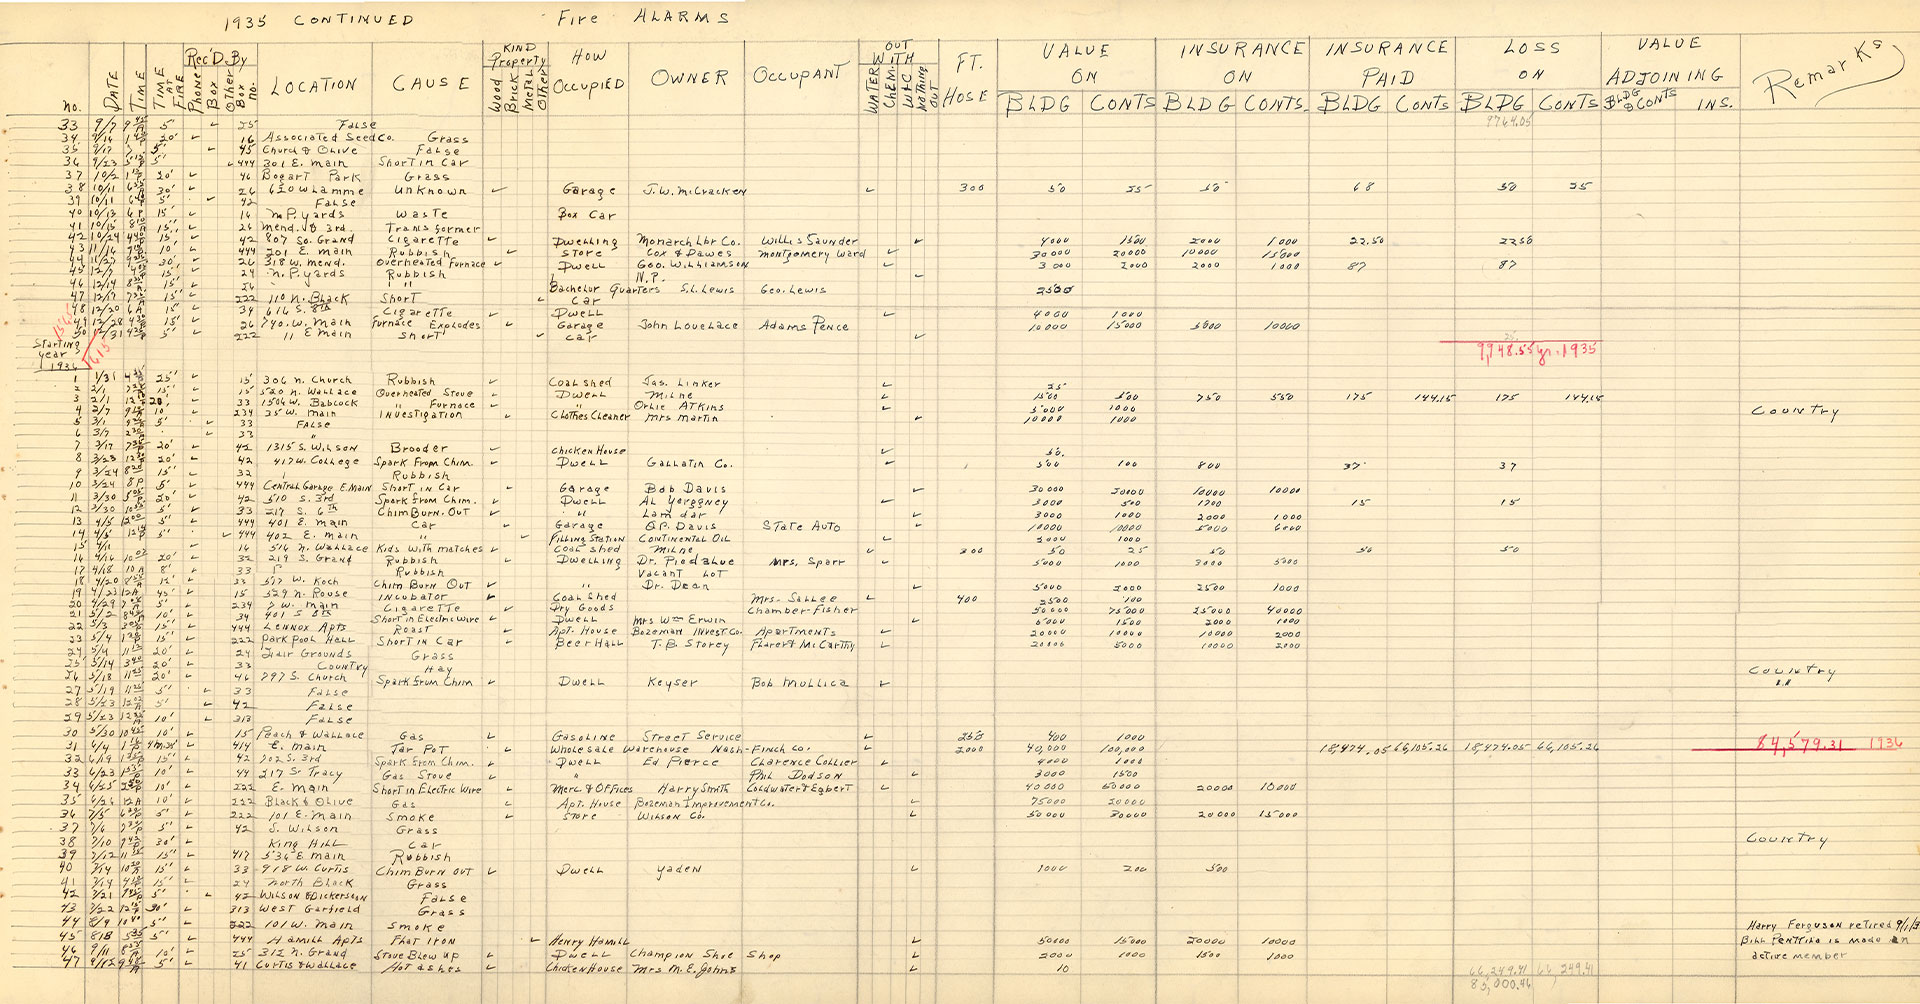 1935 CONTINUED Fire ALARMS
no. DATE TIME TIME AT FIRE Rec'D. By Phone Box Other Box no. LOCATION CAUSE KIND Property Wood Brick Metal Other HOW OCCUPIED OWNER OCCUPANT OUT WITH WATER CHEM. W&C. Nothing OUT FT. HOSE VALUE ON BLDG CONTS INSURANCE ON BLDG CONTS. INSURANCE PAID BLDG CONTS LOSS ON BLDG CONTS VALUE ADJOINING BLDG & CONTS INS. Remarks
33 9/7 5' 25 False 9764.05
34 9/14 20' 16 Associated Seed Co. Grass
35 9/17 5' 45 Church & Olive False
36 9/23 5' 444 301 E. Main Short in Car
37 10/2 20' 46 Bogart Park Grass
38 10/11 30' 26 620 W Lamme Unknown Garage J.W. McCracken 300 50 25 50 68 50 25
39 10/11 5' 42 False
40 10/13 6 P 15' 16 N.P. yards Waste Box Car
41 10/15 15' 26 Mend. & 3rd. Transformer
42 10/24 15' 42 807 So. Grand Cigarette Dwelling Monarch Lbr Co. Willis Saunder 4000 1500 2000 1000 22.50 2250
43 11/16 10' 444 201 E. Main Rubbish Store Cox & Dawes Montgomery Ward 30000 20000 10000 15000
44 11/27 30' 26 318 W. Mend. Overheated Furnace Dwell Geo. Williamson 3000 2000 2000 1000 87 87
45 12/7 15' 24 N.P. yards Rubbish N.P.
46 12/14 15' 26 " " Bachelor Quarters S.L. Lewis Geo. Lewis 2500
47 12/17 15' 222 110 N. Black Short Car
48 12/20 6 A 15" 34 616 S. 8th Cigarette Dwell 4000 1000
49 12/28 15' 26 740. W. Main Furnace Explodes Garage John Lovelace Adams Pence 10000 15000 5000 10000
50 12/31 5' 222 11 E Main Short Car
Starting year 1936 9,948.55 yr. 1935
1 1/31 25" 15 306 N. Church Rubbish Coal shed Jas. Linker 25
2 2/1 15' 15 520 N. Wallace Overheated Stove Dwell Milne 1500 500 750 550 175 144.15 175 144.15
3 2/1 20' 33 1506 W. Babcock " Furnace " Orlie Atkins 5000 1000 Country
4 2/7 10' 234 25 W. Main Investigation Clothes Cleaner Mrs Martin 10000 1000
5 3/1 5' 33 FALSE
6 3/7 33 "
7 3/17 20' 42 1315 S. Wilson Brooder Chicken House 50.
8 3/23 20' 42 417 W. College Spark From Chim. Dwell Gallatin Co. 500 100 800 37 37
9 3/24 15" 32 Rubbish
10 3/24 8 P 5' 444 Central Garage E. Main Short in Car Garage Bob Davis 30000 20000 10000 10000
11 3/30 20' 42 510 S. 3rd Spark from Chim. Dwell 3000 500 1200 15 15
12 3/30 5' 33 217 S. 6th Chim Burn. Out " Lamdar 3000 1000 2000 1000
13 4/5 5" 444 401 E. Main Car Garage G.P. Davis State Auto 10000 10000 5000 6000
14 4/5 5" 444 402 E. Main " Filling Station Continental Oil 2000 1000
15 4/11 16 516 N. Wallace Kids with matches Coal shed Milne 300 50 25 50 50 50
16 4/16 20' 32 219 S. Grand Rubbish Dwelling Dr. Piedalue Mrs. Sparr 5000 1000 3000 5000
17 4/18 10 A 8' 33 Rubbish Vacant Lot
18 4/20 12' 33 517 W. Koch Chim Burn Out " Dr. Dean 5000 2000 2500 1000
19 4/23 12 A 45' 15 529 N. Rouse Incubator Coal Shed Mrs- Sallee 400 2500 100
20 4/29 5' 234 7 W. Main Cigarette Dry Goods Chamber-Fisher 50000 75000 25000 40000
21 5/2 10' 34 401 S 8th Short in Electric Wire Dwell Mrs Wm Erwin 5000 1500 2000 1000
22 5/3 15' 444 Lennox Apts Roast Apt. House Bozeman Invest Co. Apartments 20000 10000 10000 2000
23 5/4 15" 222 Park Pool Hall Short in Car Beer Hall T.B. Storey 20000 5000 10000 2000
24 5/4 20' 24 Fair Grounds Grass
25 5/14 20' 33 Country Hay Country
26 5/18 20' 46 797 S. Church Spark from Chim Dwell Keyser Bob Mullica "
27 5/19 5' 33 False
28 5/23 5' 42 False
29 5/23 10' 313 False
30 5/30 10' 15 Peach & Wallace Gas Gasoline Street Service 250 400 1000
31 6/4 414 E. Main Tar Pot Wholesale Warehouse Nash-Finch Co. 2000 40,000 100,000 18,474.05 66,105.26 18,474.05 66,105.26 84,579.31 1936
32 6/19 15" 42 702 S. 3rd Spark from Chim. Dwell Ed Pierce Clarence Collier 4000 1000
33 6/23 10' 44 217 S. Tracy Gas Stove " Phil Dodson 3000 1500
34 6/25 10' 222 E. Main Short in Electric Wire Merc. & Offices Harry Smith Coldwater & Egbert 40000 60000 20000 10000
35 6/26 12 A 10' 222 Black & Olive Gas Apt. House Bozeman Improvement Co. 75000 20000
36 7/5 5' 222 101 E. Main Smoke Store Wilson Co. 50000 30000 20000 15000
37 7/6 5" 42 S. Wilson Grass
38 7/10 30' King Hill Car Country
39 7/12 15" 417 536 E. Main Rubbish
40 7/14 15" 33 918 W. Curtis Chim Burn out Dwell Yaden 1000 200 500
41 7/19 15" 24 North Black Grass
42 7/21 5' 42 Wilson & Dickerson False
43 7/22 30' 313 West Garfield Grass
44 8/9 5" 222 101 W. Main Smoke Harry Ferguson retired 9/1/3
45 8/8 5" 444 Hamill Apts Flat Iron Henry Hamill 50000 15000 20000 10000 Bill is made an
46 9/11 10' 25 312 N. Grand Stove Blew up Dwell Champion Shoe Shop 2000 1000 1500 1000 active member
47 9/12 5' 41 Curtis & Wallace Hot ashes Chicken House Mrs M.E. Johns 10
66,249.41 66,249.41
85,000.46